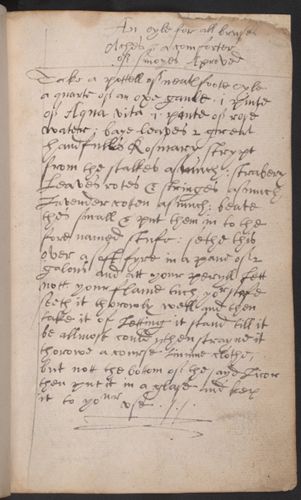 An oyle for all bruses
Aches & a comforter
of sinoyes Aproved
Take a pottell of neatt foote oyle
a quarte of an oxe gaule i pinte
of Aqua vita i pinte of rose
water: baye leaves 2 great
handfulls Rosmary strypt
from the stalkes asmuch: strabery
Leaves rotes & stringes asmuch
Lavender coten asmuch: beate
thes small & put them in to the
fore named stufe: sethe this
over a soft fyre in a pane of 2
galons and att your perrill Lett
nott your flame tuch yor stufe
seeth it thorowly well and then
take it of Letting it stand till it
be allmose could then strayne it
thorowe a course linnine clothe,
but nott the botom of the sayd Licor
then put it in a glase and kep
it to your use